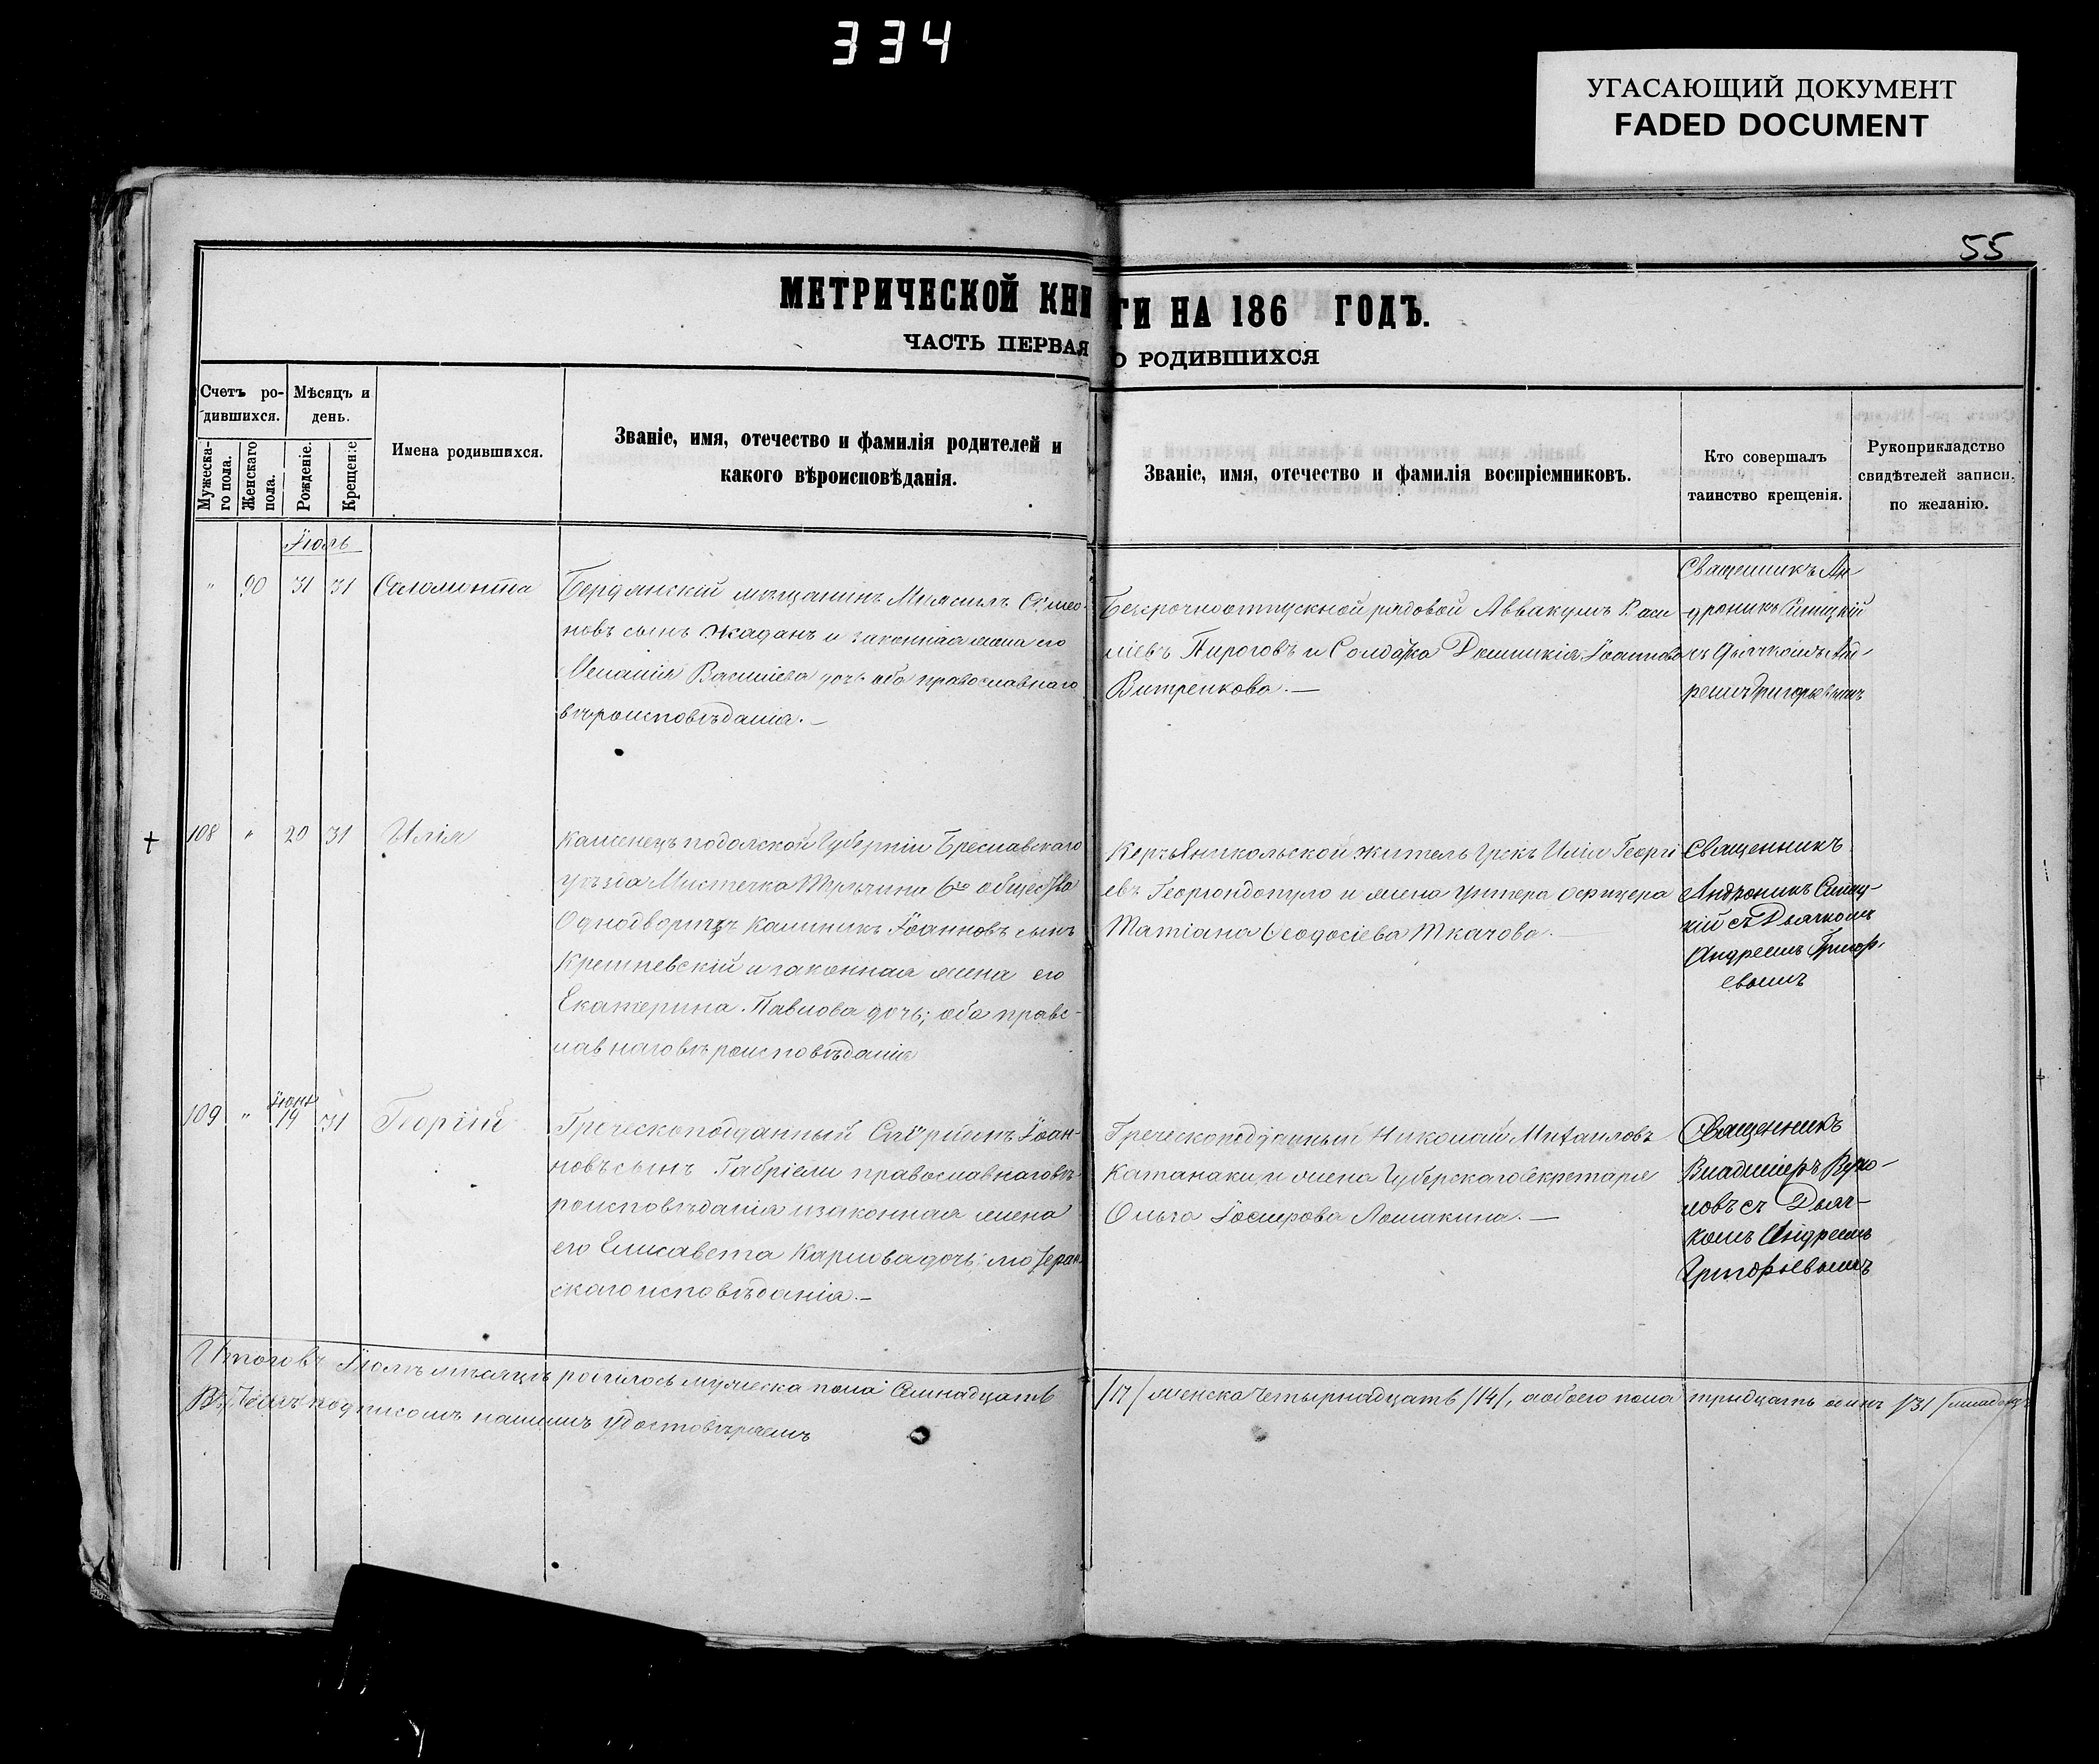 334
УГАСАЮЩИЙ ДОКУМЕНТ
FADED DOCUMENT
55
МЕТРИЧЕСКОЙ КНИГИ НА 186 ГОДЪ.
ЧАСТЬ ПЕРВАЯ О РОДИВШИХСЯ
Счетъ ро-
дившихся.
Мужеска-
го пола.
Женскаго
пола.
Мѣсяцъ и
день.
Рожденіе.
Крещеніе
Имена родившихся.
Званіе, имя, отечество и фамилія родителей и
какого вѣроисповѣданія.
Званіе, имя, отечество и фамилія воспріемниковъ.
Кто совершалъ
таинство крещенія.
Рукоприкладство
свидѣтелей записи.
по желанію.
Іюль
" 90 31 31
Бердянскій мѣщанинъ
новъ сынъ Жаданъ и законная жена его
Василіева дочь оба православнаго
вѣроисповѣданія.—
Безсрочноотпускной рядовой Аввакумъ Васи
ліевъ Пироговъ и Солдатка Домникія Іоаннова
Витренкова.—
Священникъ Ан
дроникъ Синицкій
съ Дьячкомъ Анд-
реемъ Григорьевымъ
108 " 20 31 Илія
Каменецъ подолской Губерніи Бреславскаго
уѣзда Мистечка Тульчина 6го общества
Однодворецъ Іоанновъ сынъ
и законная жена его
Екатерина Павлова дочь; оба правс-
лавнаго вѣроисповѣданія
Керчьэникольской житель Грекъ Илія Георгі
евъ и жена Унтера офицера
Татіана Ѳеодосіева Ткачова.
Священникъ
Андроникъ Синиц-
кій съ Дьячкомъ
Андреемъ Григор-
евымъ
109 " Іюня 19 31 Георгій
Греческоподданный Спѵридонъ Іоан-
новъ сынъ Габріели православнаго вѣ-
роисповѣданія и законная жена
его Елисавета Карлова дочь лютеран-
скаго исповѣданія.—
Греческоподданный Николай Михаиловъ
Катанаки, и жена Губерскаго секретаря
Ольга Іосифова Лошакина.—
Священникъ
Владиміръ
ловъ съ Дьяч-
комъ Андреемъ
Григорьевымъ
Итого въ Іюлѣ мѣсяцѣ родилось мужеска пола Семнадцать /17/ женска Четырнадцать /14/, а обоего пола тридцать одинъ /31/
Въ чемъ подписомъ нашимъ удостовѣряемъ